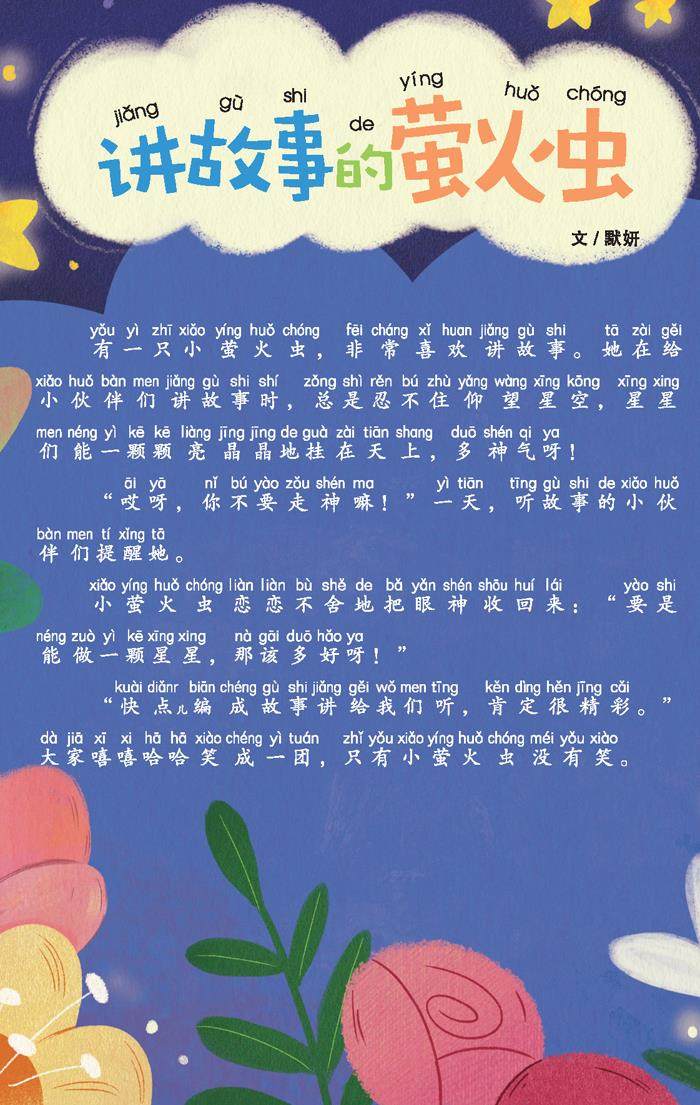 jiǎng gù shi de yíng huǒ chóng
讲故事的萤火虫
文 / 默妍
yǒu yì zhī xiǎo yíng huǒ chóng fēi cháng xǐ huan jiǎng gù shi tā zài gěi
有一只小萤火虫，非常喜欢讲故事。她在给
xiǎo huǒ bàn men jiǎng gù shi shí zǒng shì rěn bú zhù yǎng wàng xīng kōng xīng xing
小伙伴们讲故事时，总是忍不住仰望星空，星星
men néng yì kē kē liàng jīng jīng de guà zài tiān shang duō shén qi ya
们能一颗颗亮晶晶地挂在天上，多神气呀！
āi yā nǐ bú yào zǒu shén ma yì tiān tīng gù shi de xiǎo huǒ
“哎呀，你不要走神嘛！”一天，听故事的小伙
bàn men tí xǐng tā
伴们提醒她。
xiǎo yíng huǒ chóng liàn liàn bù shě de bǎ yǎn shén shōu huí lái yào shi
小萤火虫恋恋不舍地把眼神收回来：“要是
néng zuò yì kē xīng xing nà gāi duō hǎo ya
能做一颗星星，那该多好呀！”
kuài diǎnr biān chéng gù shi jiǎng gěi wǒ men tīng kěn dìng hěn jīng cǎi
“快点儿编成故事讲给我们听，肯定很精彩。”
dà jiā xī xi hā hā xiào chéng yì tuán zhǐ yǒu xiǎo yíng huǒ chóng méi yǒu xiào
大家嘻嘻哈哈笑成一团，只有小萤火虫没有笑。